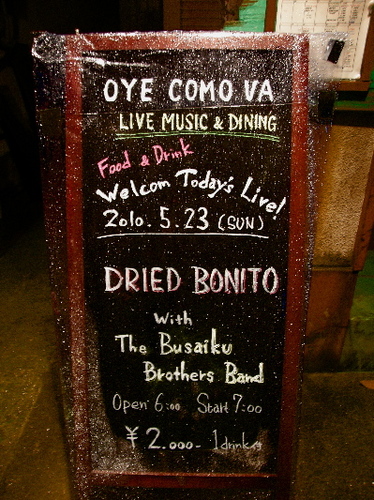 OYE COMO VA
LIVE MUSIC & DINING
Food & Drink
Welcom Today's Live!
2010. 5. 23 (SUN)
DRIED BONITO
With
The Busaiku
Brothers Band
Open 6:00 Start 7:00
¥2.000- 1drink